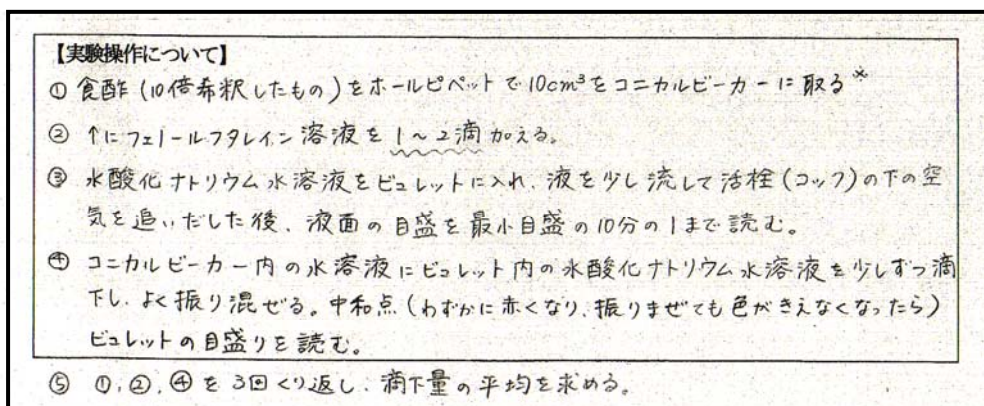 【実験操作について】
① 食酢(10倍希釈したもの)をホールピペットで10cm³をコニカルビーカーに取る*
② ↑にフェノールフタレイン溶液を1~2滴加える。
③ 水酸化ナトリウム水溶液をビュレットに入れ、液を少し流して活栓(コック)の下の空
気を追いだした後、液面の目盛を最小目盛の10分の1まで読む。
④ コニカルビーカー内の水溶液にビュレット内の水酸化ナトリウム水溶液を少しずつ滴
下し、よく振り混ぜる。中和点(わずかに赤くなり、振りまぜても色がきえなくなったら)
ビュレットの目盛りを読む。
⑤ ①,②,④を3回くり返し、滴下量の平均を求める。